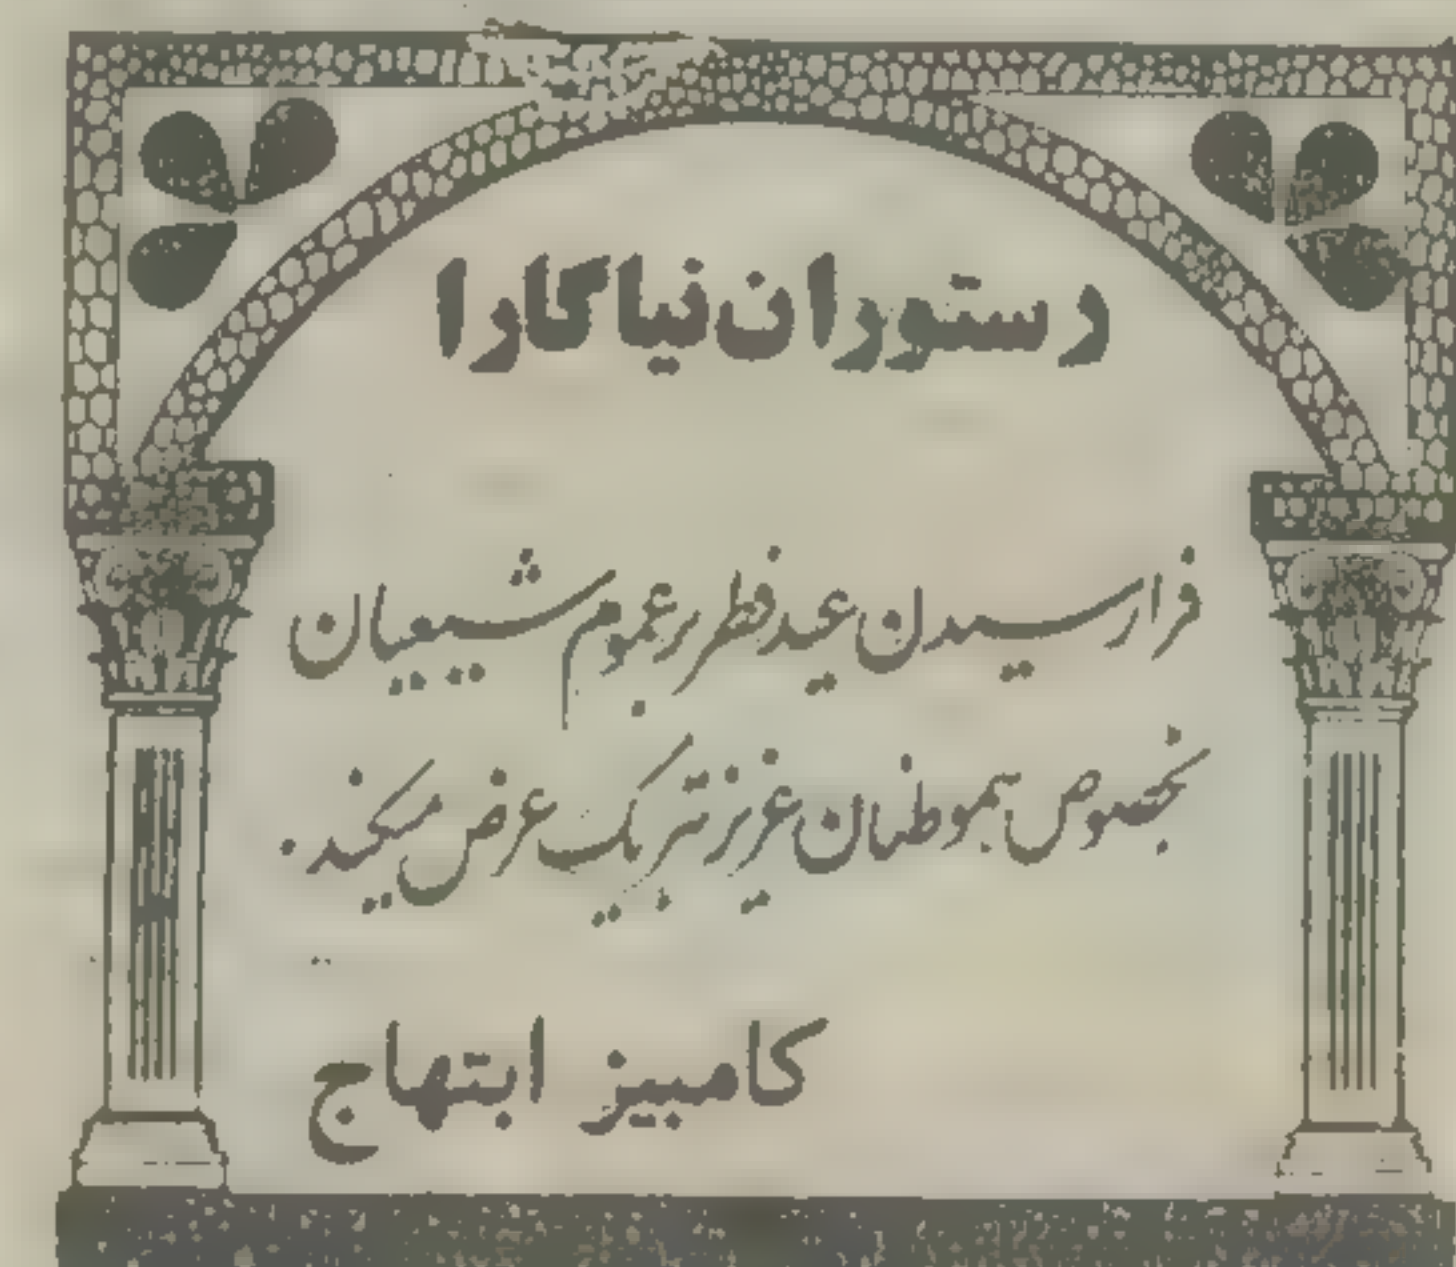 رستوران نیاگارا
فرارسیدن عید فطر بر عموم شیعیان
بخصوص هموطنان عزیز تبریک عرض میکند.
کامبیز ابتهاج